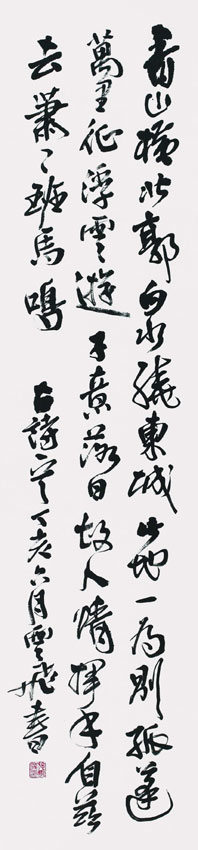 青山橫北郭白水繞東城此地一為別孤蓬
萬里征浮雲遊子意落日故人情揮手自茲
去蕭々班馬鳴 古詩 丁亥六月雲飛書